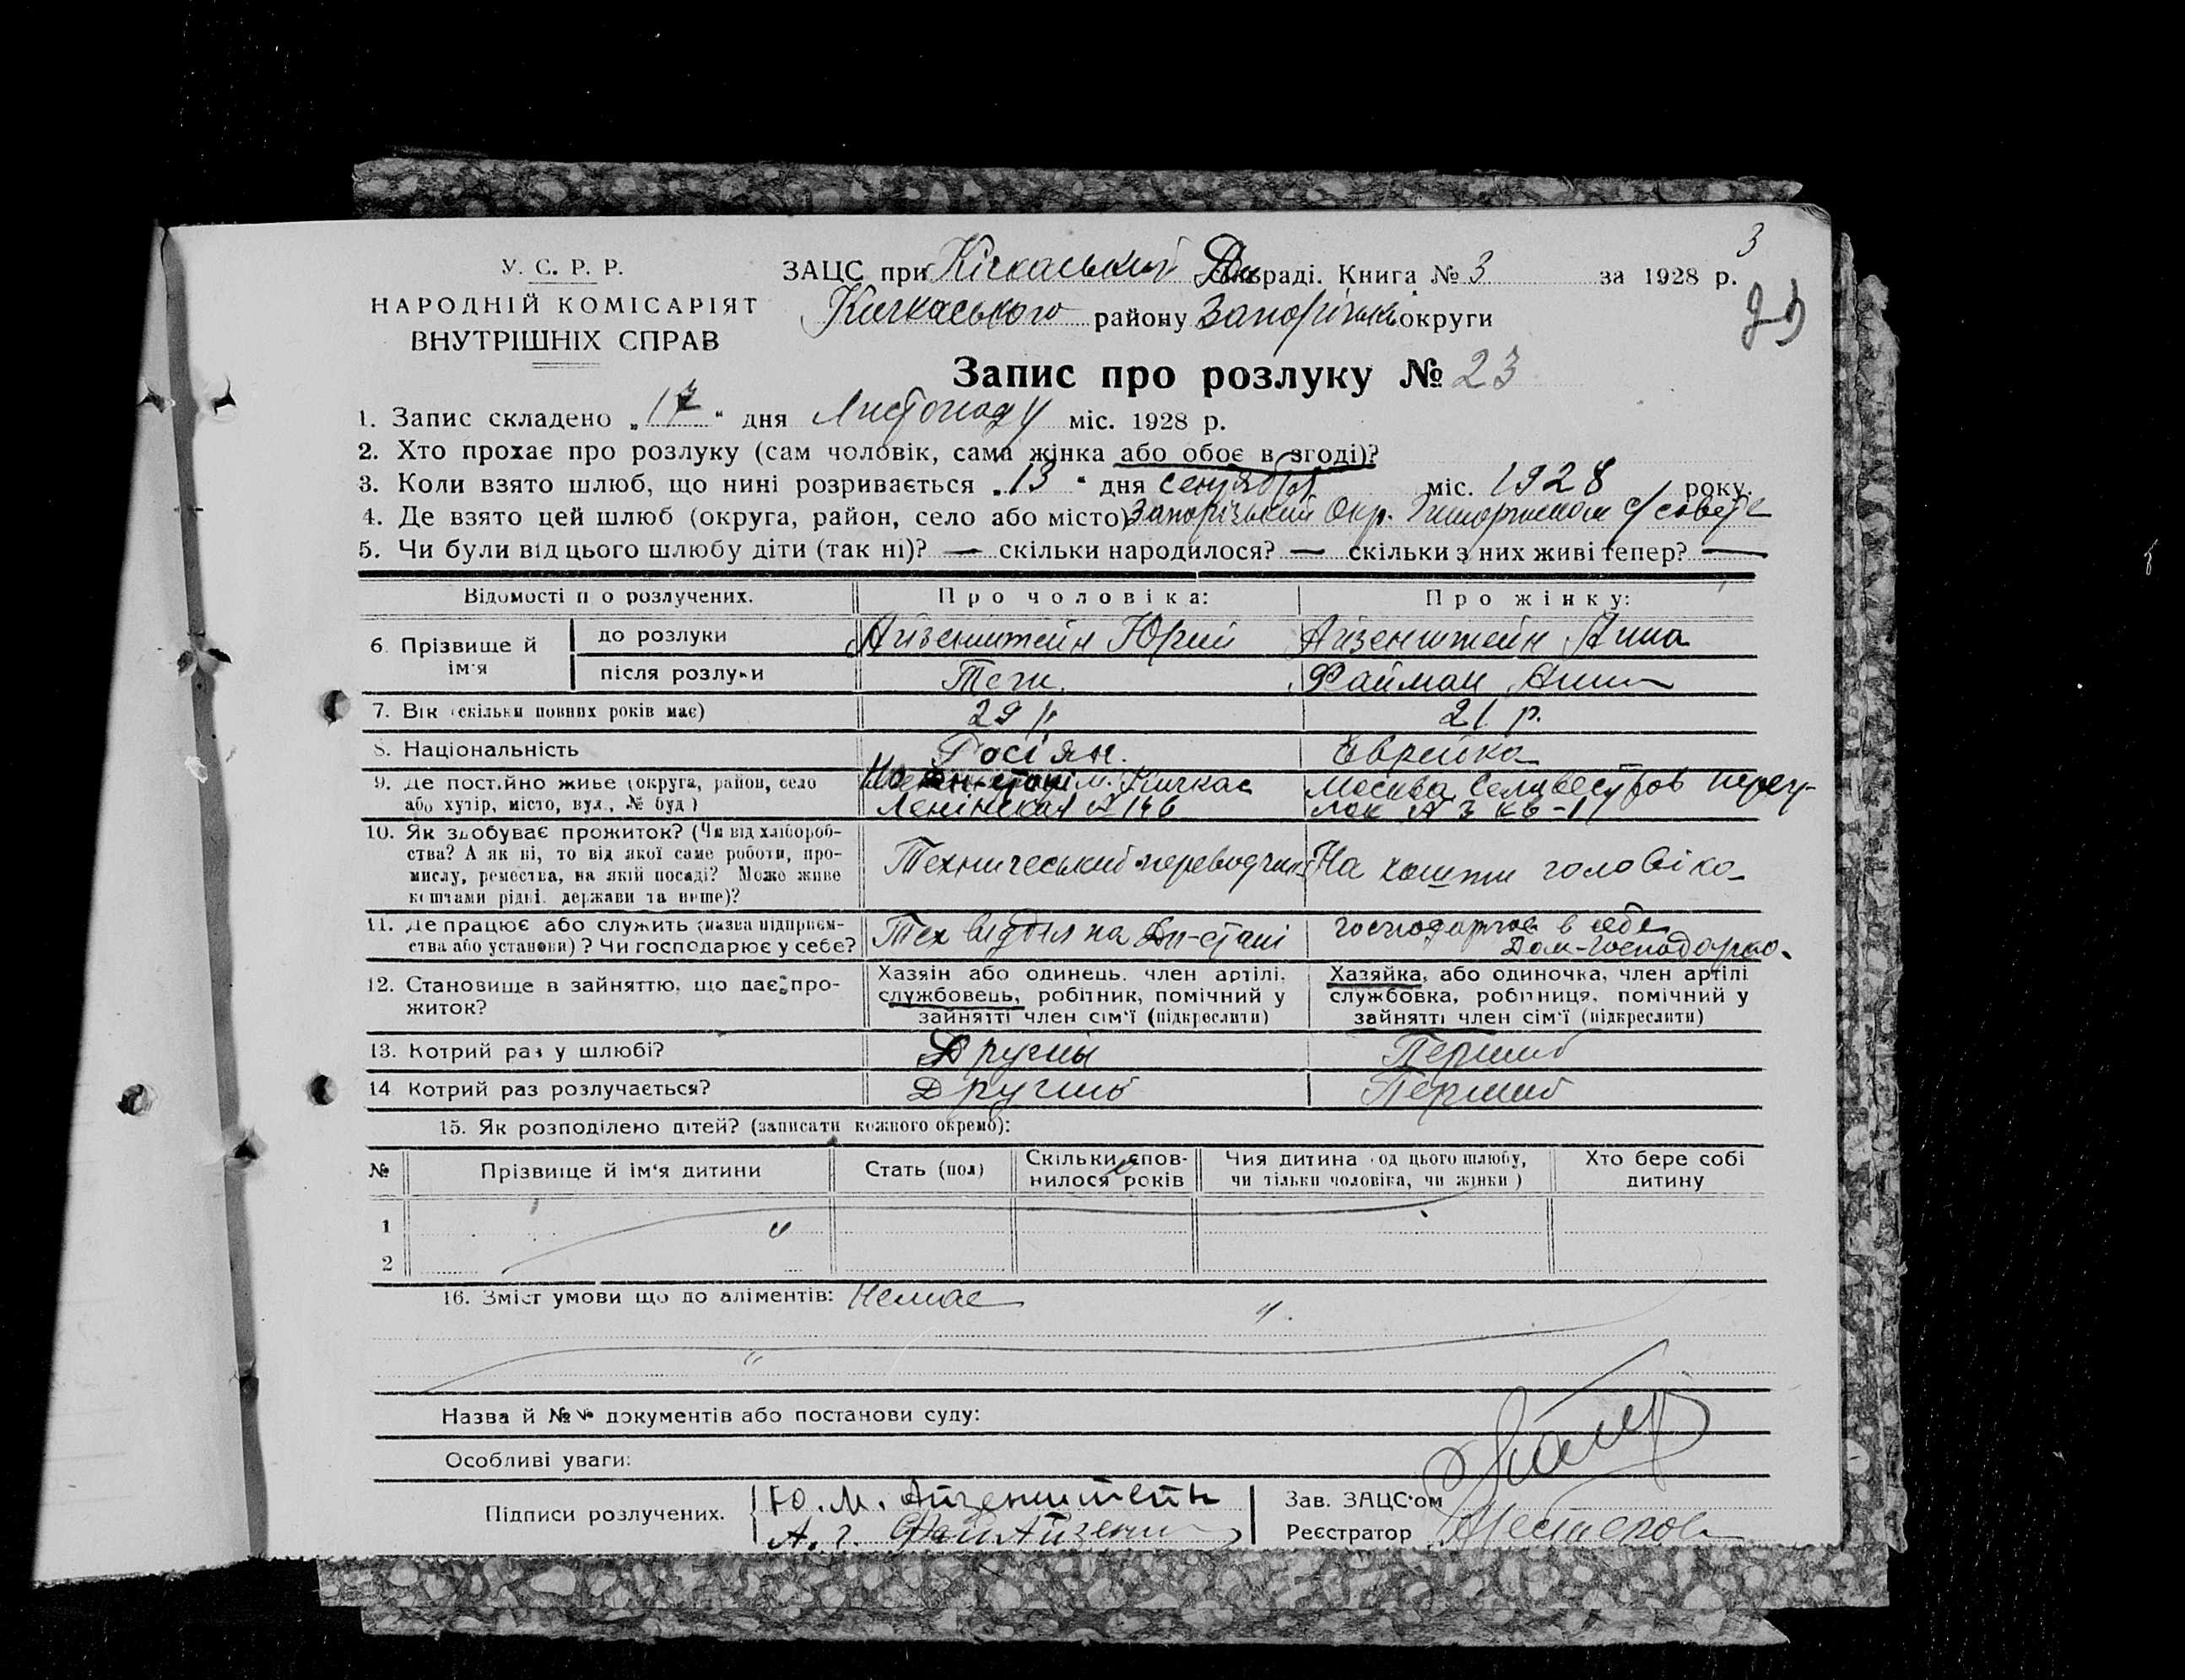 3
У. С. Р. Р.
НАРОДНІЙ КОМІСАРІЯТ
ВНУТРІШНІХ СПРАВ
ЗАЦС при Кічкаський раді. Книга № 3 за 1928 р.
Кічкаського району Запорізьк округи
Запис про розлуку № 23
1. Запис складено „17“ дня Листопаду міс. 1928 р.
2. Хто прохає про розлуку (сам чоловік, сама жінка або обоє в згоді)?
3. Коли взято шлюб, що нині розривається „13“ дня сентября міс. 1928 року.
4. Де взято цей шлюб (округа, район, село або місто) Запорізький Окр. с/совете
5. Чи були від цього шлюбу діти (так ні)? — скільки народилося? — скільки з них живі тепер? —
Відомості про розлучених. Про чоловіка: Про жінку:
6. Прізвище й ім'я до розлуки Айзенштейн Юрий Айзенштейн Анна
після розлуки Теж. Файман Анна
7. Вік (скільки повних років має) 29 р. 21 р.
8. Національність Росіян. Еврейка
9. Де постійно живе (округа, район, село м. Кичкас Москва Селивестров переу-
або хутір, місто, вул., № буд) Ленінская № 146 лок № 3 кв-11
10. Як здобуває прожиток? (Чи від хлібороб-
ства? А як ні, то від якої саме роботи, про-
мислу, ремества, на якій посаді? Може живе
коштами рідні, держави та инше)? Техничеський переводчик На кошти чоловіка
11. Де працює або служить (назва підприєм- Тех відділ на Дн-стані господарює в себе
ства або установи)? Чи господарює у себе? Дом-господарка.
12. Становище в зайняттю, що дає про-
житок?
Хазяін або одинець, член артілі,
службовець, робітник, помічний у
зайнятті член сім'ї (підкреслити)
Хазяйка, або одиночка, член артілі
службовка, робітниця, помічний у
зайнятті член сім'ї (підкреслити)
13. Котрий раз у шлюбі? Другий Перший
14. Котрий раз розлучається? Другий Перший
15. Як розподілено дітей? (записати кожного окремо):
№ Прізвище й ім'я дитини Стать (пол) Скільки спов-
нилося років Чия дитина (од цього шлюбу,
чи тільки чоловіка, чи жінки) Хто бере собі
дитину
1
2
16. Зміст умови що до аліментів: Немає
Назва й №№ документів або постанови суду:
Особливі уваги:
Підписи розлучених. Ю. М. Айзенштейн
А. Г.
Зав. ЗАЦС'ом
Реєстратор Нестеров